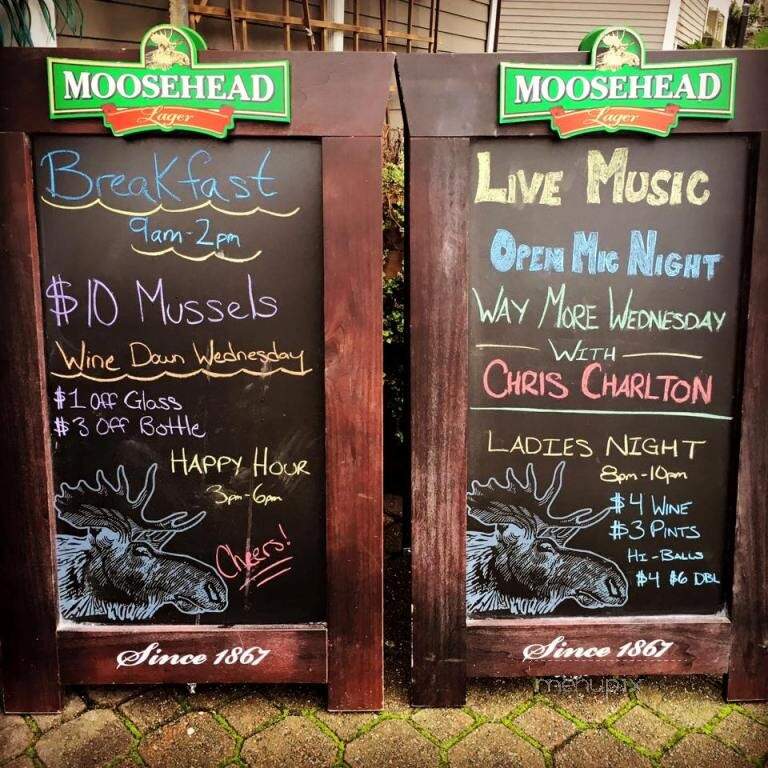 MOOSEHEAD
Lager
Breakfast
9am-2pm
$10 Mussels
Wine Down Wednesday
$1 off Glass
$3 off Bottle
HAPPY HOUR
3pm-6pm
Cheers!
Since 1867
MOOSEHEAD
Lager
LIVE MUSIC
OPEN MIC NIGHT
WAY MORE WEDNESDAY
WITH
CHRIS CHARLTON
LADIES NIGHT
8pm-10pm
$4 WINE
$3 PINTS
HI-BALLS
$4 $6 DBL
Since 1867
menupix